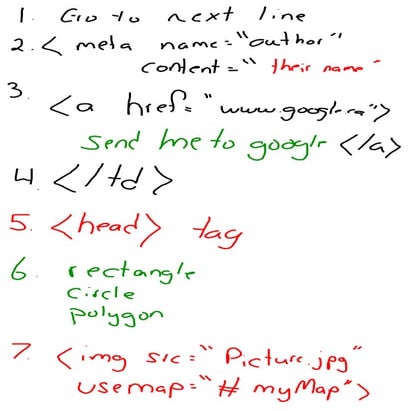 1. Go to next line
2. < meta name="author"
content=" their name"
3.
<a href="www.google.ca">
send me to google </a>
4. </td>
5. <head> tag
6. rectangle
circle
polygon
7. <img src="Picture.jpg"
usemap="# myMap">